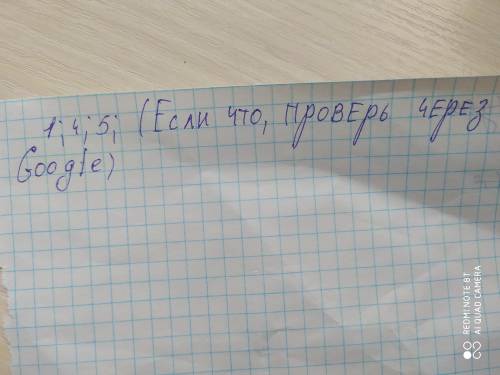 1; 4; 5; (Если что, проверь через
Google)
REDMI NOTE 8T
AI QUAD CAMERA